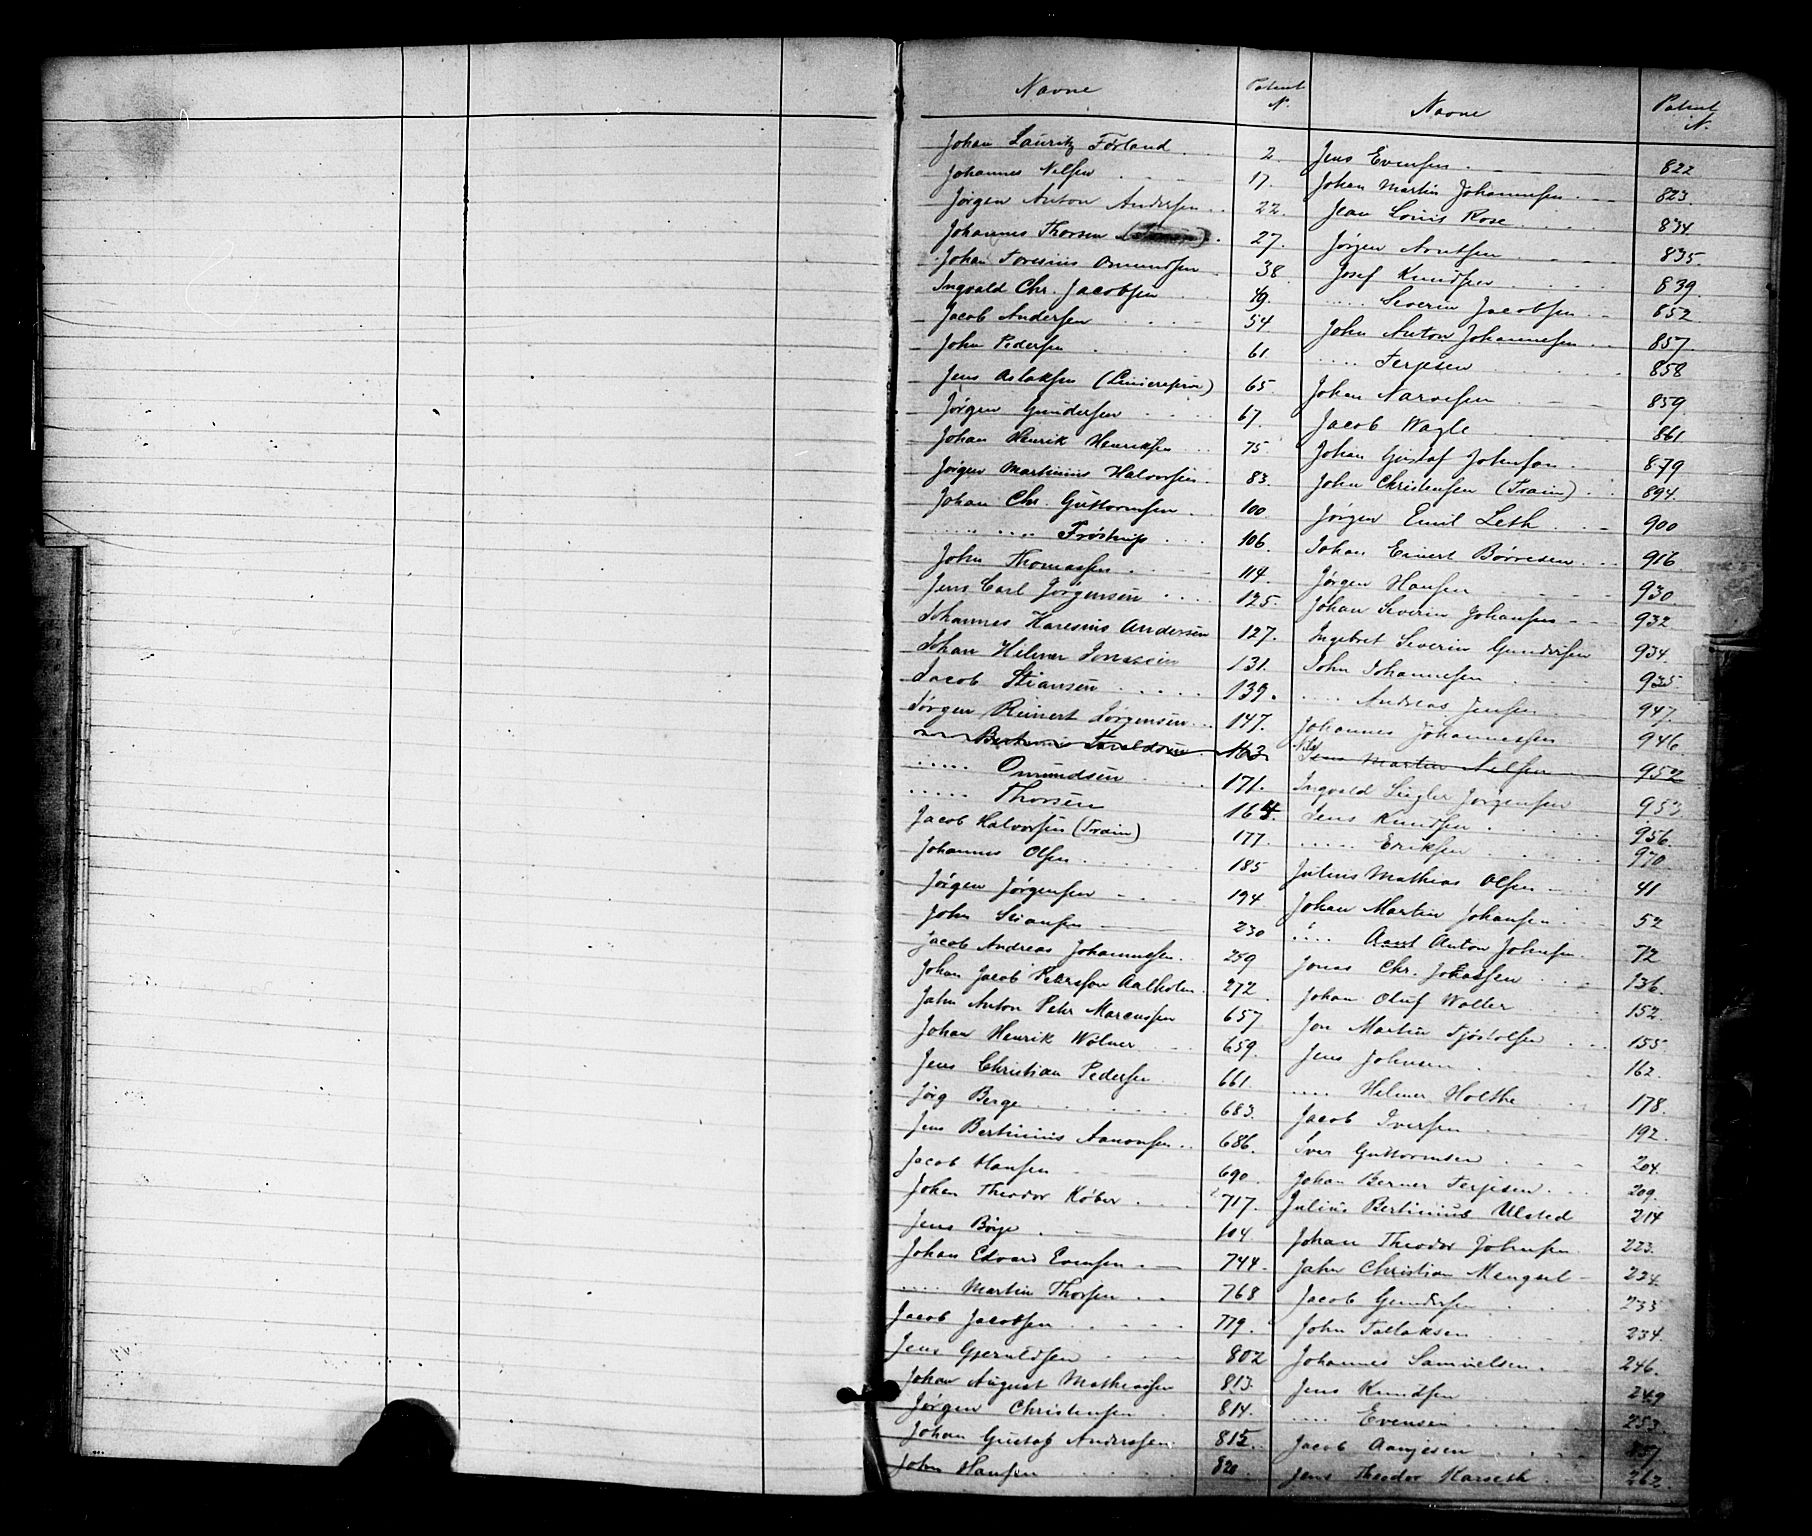 Navne Patent N.
Johan Lauritz Forland 2.
Johannes Nilsen 17.
Jørgen Anton Andersen 22.
Johannes Thorsen 27.
Johan Omundsen 38
Ingvald Chr. Jacobsen 49.
Jacob Andersen 54
John Pedersen 61
Jens Aslaksen 65
Jørgen Gundersen 67.
Johan Henrik Henriksen 75
Jørgen Martinius Halvorsen 83.
Johan Chr. Guttormsen 100.
..... .... Frøstrup 106.
John Thomassen 114.
Jens Carl Jørgensen 125.
Johannes Karenius Andersen 127.
Johan Helmer 131.
Jacob Stiansen 139.
Jørgen Reinert Jørgensen 147.
163.
..... Omundsen 171.
..... Thorsen 164.
Jacob Halvorsen (Train) 177.
Johannes Olsen 185
Jørgen Jørgensen 194
John Stiansen 230
Jacob Andreas Johannesen 259
Johan Jacob Aalholm 272
Jahn Anton Petr Marcussen 657
Johan Henrik Wølner 659.
Jens Christian Pedersen 661
Jörg Berge 683.
Jens Bertinius Aanonsen 686.
Jacob Hansen 690.
Johan Theodor Køber 717.
Jens Børje 104
Johan Edvard Evensen 744
..... Martin Thorsen 768
Jacob Jacobsen 779.
Jens Gjeruldsen 802
Johan August Mathiassen 813.
Jørgen Christensen 814.
Johan Gustaf Andersen 815
John Hansen 820
Navne Patent N.
Jens Evensen 822
Johan Martin Johannesen 823.
Jean Louis Rose 834
Jørgen Arntsen 835.
Josef Knudsen 839.
..... Severin Jacobsen 852
John Anton Johannesen 857.
..... Terjesen 858
Johan Narvesen 859.
Jacob Wagle 861
Johan Gustaf Johnson 879
John Christensen (Train) 894.
Jørgen Emil Leth 900
Johan Einert Børresen 916
Jørgen Hansen 930.
Johan Severin Johansen 932
Ingebret Severin Gundersen 934.
John Johannesen 935
..... Andreas Jensen 947.
Johannes Johannessen 946
Jens Martin Nilsen 952
Ingvald Jørgensen 953
Jens Knudsen 956.
..... Eriksen 970
Julius Mathias Olsen 41
Johan Martin Johansen 52
..... Aant Anton Johnsen 72
Jonas Chr. 136.
Johan Oluf Walter 152
Jon Martin Fjøstolsen 155
Jens Johnsen 162
..... Helmer Holthe 178.
Jacob Iversen 192.
Iver Guttormsen 204.
Johan Berner Terjesen 209.
Julius Bertinius Ulsted 214
Johan Theodor Johnsen 223.
Jahn Christian 224.
Jacob Gundersen 233
John Tallaksen 234.
Johannes Samuelsen 246.
Jens Knudsen 249
..... Evensen 253.
Jacob Aanjesen 257
Jens Theodor Karseth 262.